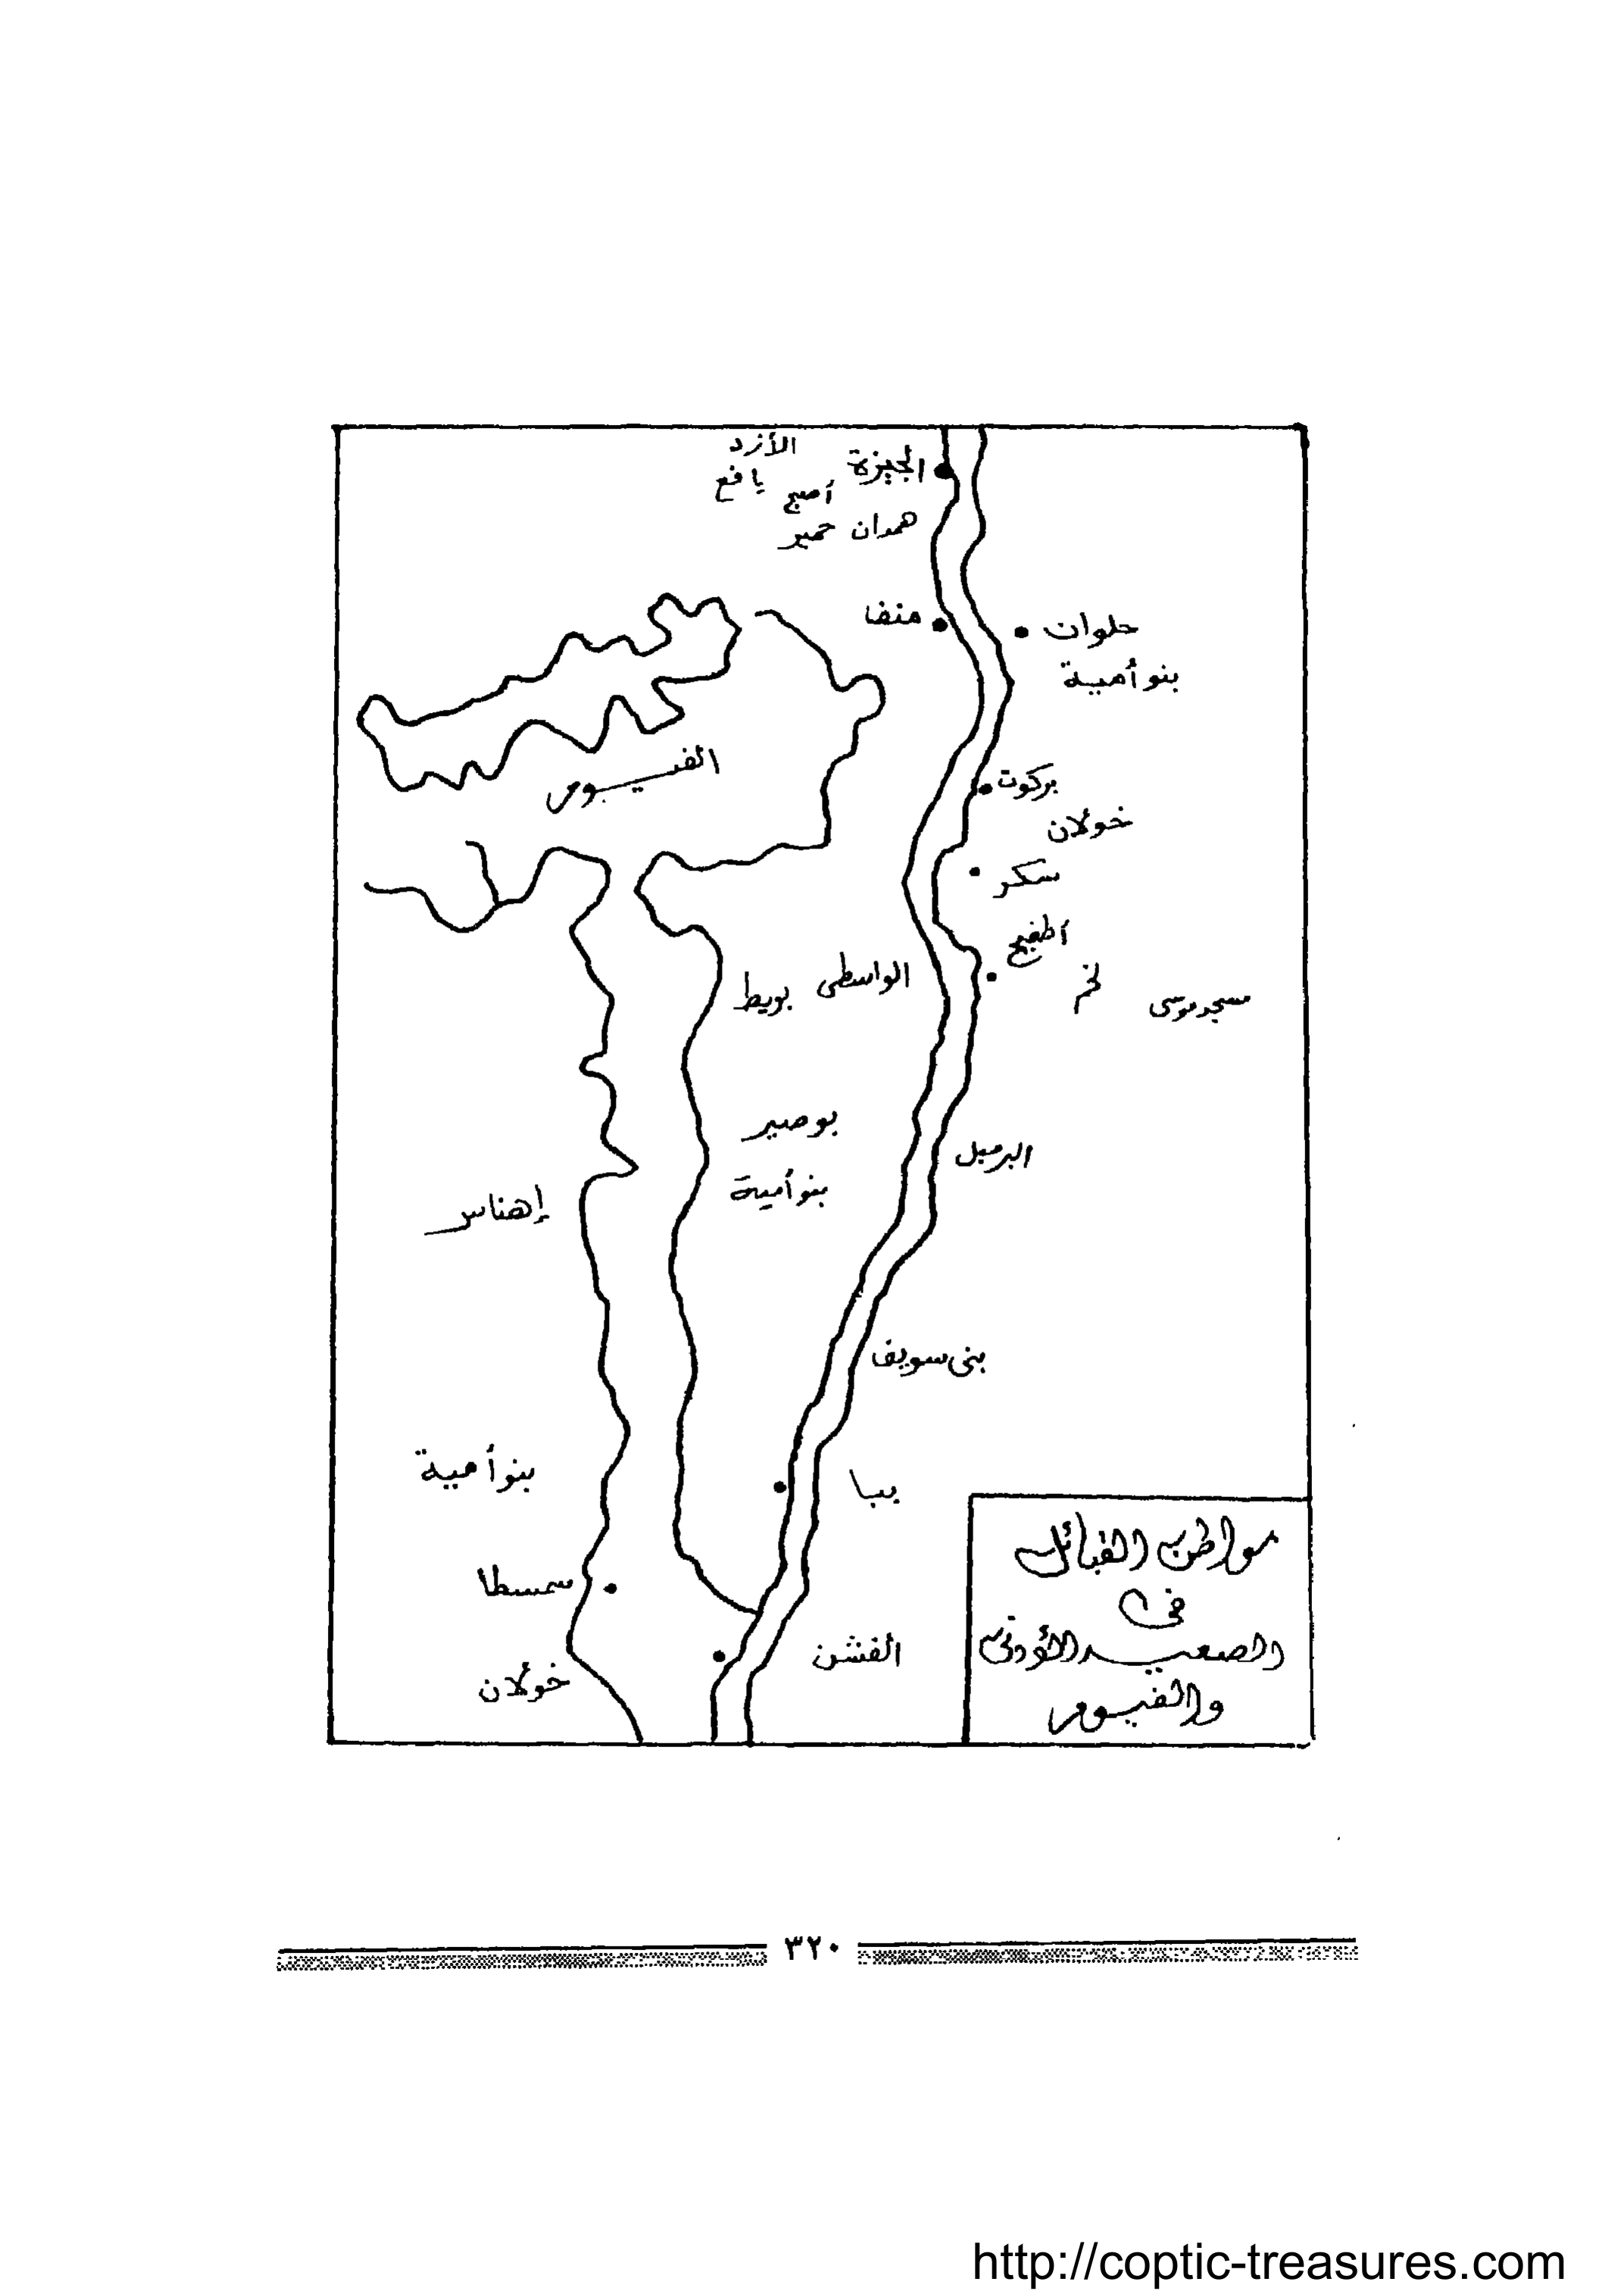 الأزد
الجيزة
يافع
أصبح
همدان حمير
منفا
حلوان
بنو أمية
الفيوم
بركوت
خولان
سكر
أطفيح
لخم
مسجد موسى
الواسطى
بويط
بوصير
بنو أمية
البرمبل
إهناس
بنى سويف
بنو أمية
ببا
سمسطا
الفشن
خولان
مواطن القبائل
فى
الصعيد الأدنى
والفيوم
٣٢٠
http://coptic-treasures.com